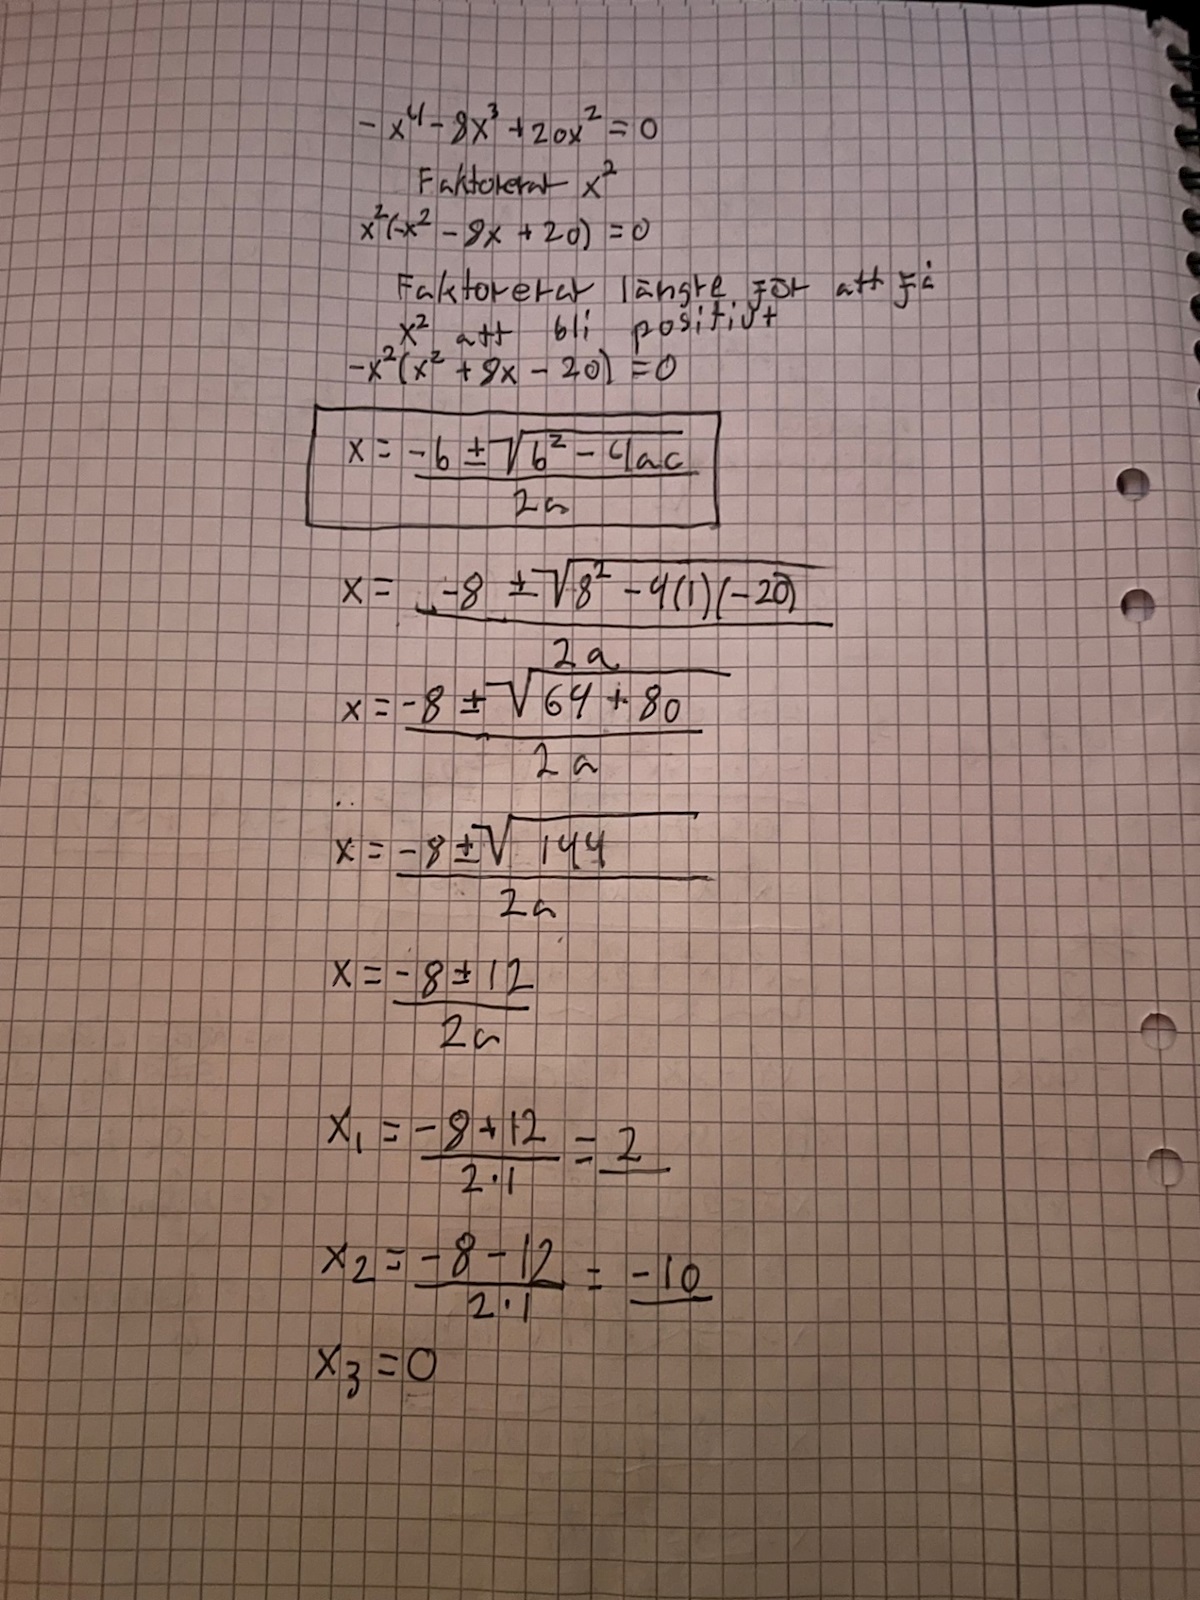 -x⁴ - 8x³ + 20x² = 0
Faktorerar x²
x²(-x² - 8x + 20) = 0
Faktorerar längre för att få
x² att bli positivt
-x²(x² + 8x - 20) = 0
x = (-b ± √(b² - 4ac)) / 2a
x = (-8 ± √(8² - 4(1)(-20))) / 2a
x = (-8 ± √(64 + 80)) / 2a
x = (-8 ± √144) / 2a
x = (-8 ± 12) / 2a
x₁ = (-8 + 12) / (2·1) = 2
x₂ = (-8 - 12) / (2·1) = -10
x₃ = 0